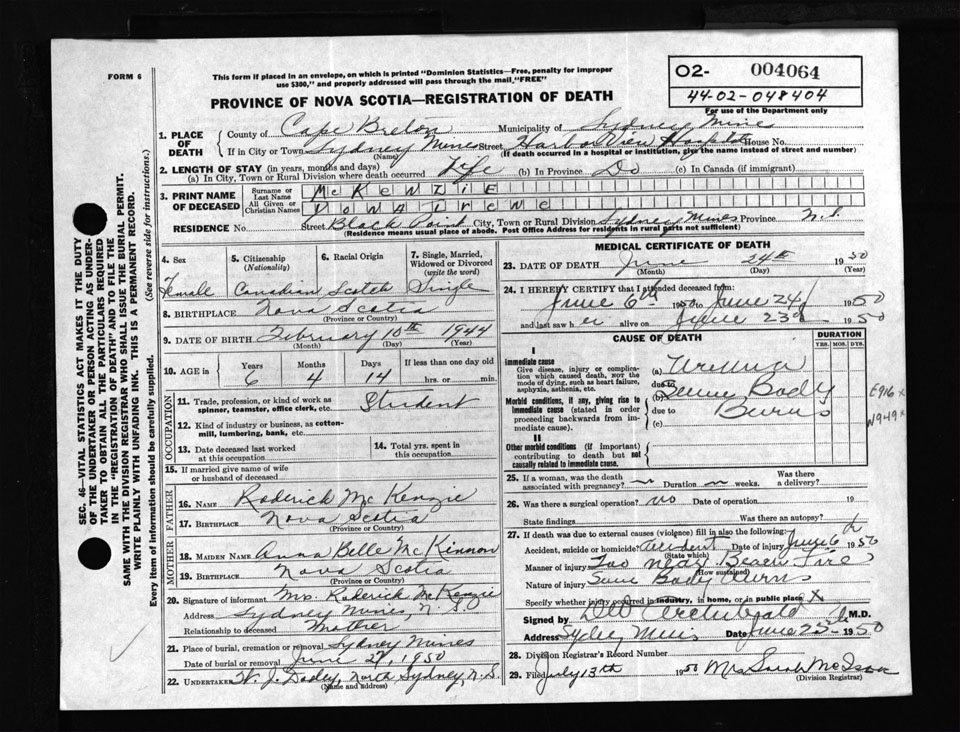 FORM 6
This form if placed in an envelope, on which is printed "Dominion Statistics—Free, penalty for improper
use $300," and properly addressed will pass through the mail, "FREE"
O2- 004064
44-02-048404
For use of the Department only
PROVINCE OF NOVA SCOTIA—REGISTRATION OF DEATH
1. PLACE OF DEATH
County of Cape Breton Municipality of Sydney Mines
If in City or Town Sydney Mines Street Harbor View Hospital House No.
(Name) (If death occurred in a hospital or institution, give the name instead of street and number)
2. LENGTH OF STAY (in years, months and days)
(a) In City, Town or Rural Division where death occurred Life (b) In Province Do (c) In Canada (if immigrant)
3. PRINT NAME OF DECEASED
Surname or Last Name McKENZIE
All Given or Christian Names DONA IRENE
RESIDENCE No. Street Black Point City, Town or Rural Division Sydney Mines Province N.S.
(Residence means usual place of abode. Post Office Address for residents in rural parts not sufficient)
4. Sex Female
5. Citizenship (Nationality) Canadian
6. Racial Origin Scotch
7. Single, Married, Widowed or Divorced (write the word) Single
8. BIRTHPLACE Nova Scotia
(Province or Country)
9. DATE OF BIRTH February 10th 1944
(Month) (Day) (Year)
10. AGE in Years 6 Months 4 Days 14 If less than one day old hrs. or min.
OCCUPATION
11. Trade, profession, or kind of work as spinner, teamster, office clerk, etc. Student
12. Kind of industry or business, as cotton-mill, lumbering, bank, etc.
13. Date deceased last worked at this occupation
14. Total yrs. spent in this occupation
15. If married give name of wife or husband of deceased
FATHER
16. NAME Roderick McKenzie
17. BIRTHPLACE Nova Scotia
(Province or Country)
MOTHER
18. MAIDEN NAME Anna Belle McKinnon
19. BIRTHPLACE Nova Scotia
(Province or Country)
20. Signature of informant Mrs. Roderick McKenzie
Address Sydney Mines, N.S.
Relationship to deceased Mother
21. Place of burial, cremation or removal Sydney Mines
Date of burial or removal June 27, 1950
22. UNDERTAKER W. J. Dooley, North Sydney, N.S.
(Name and address)
MEDICAL CERTIFICATE OF DEATH
23. DATE OF DEATH June 24th 1950
(Month) (Day) (Year)
24. I HEREBY CERTIFY that I attended deceased from:
June 6th 1950 to June 24 1950
and last saw her alive on June 23d 1950
CAUSE OF DEATH
DURATION
YRS. MOS. DYS.
I
Immediate cause
Give disease, injury or complication which caused death, not the mode of dying, such as heart failure, asphyxia, asthenia, etc.
Morbid conditions, if any, giving rise to immediate cause (stated in order proceeding backwards from immediate cause).
II
Other morbid conditions (if important) contributing to death but not causally related to immediate cause.
(a) Uremia
due to
(b) Body
due to Burns
(c)
E916 x
N949 x
25. If a woman, was the death associated with pregnancy? Duration weeks. Was there a delivery?
26. Was there a surgical operation? no Date of operation 19
State findings Was there an autopsy?
27. If death was due to external causes (violence) fill in also the following:
Accident, suicide or homicide? accident Date of injury June 6th 1950
(State which)
Manner of injury Too Near Beach Fire
(How sustained)
Nature of injury Body Burns
Specify whether injury occurred in industry, in home, or in public place X
Signed by Archibald M.D.
Address Sydney Mines Date June 25th 1950
28. Division Registrar's Record Number
29. Filed July 13th 1950 Mrs Sarah McIsaac
(Division Registrar)
SEC. 46—VITAL STATISTICS ACT MAKES IT THE DUTY
OF THE UNDERTAKER OR PERSON ACTING AS UNDER-
TAKER TO OBTAIN ALL THE PARTICULARS REQUIRED
IN THE "REGISTRATION OF DEATH" AND TO FILE THE
SAME WITH THE DIVISION REGISTRAR WHO SHALL ISSUE THE BURIAL PERMIT.
WRITE PLAINLY WITH UNFADING INK. THIS IS A PERMANENT RECORD.
Every item of information should be carefully supplied. (See reverse side for instructions.)